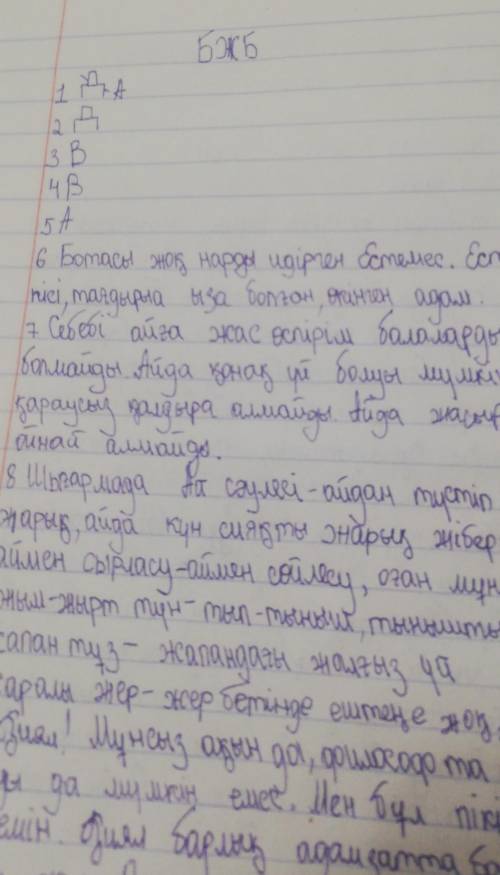 БЖБ
1 Д А
2 Д
3 В
4 В
5 А
6 Ботасы жоқ нарды идірген Естемес. Ест
нісі, тағдырға ыза болған, өкінген адам.
7 Себебі айға жас өспірім балаларды
болмайды. Айда қонақ үй болуы мүмкі
қараусыз қалдыра алмайды. Айда жасыр
ойнай алмайды.
8 Шығармада Ай сәулесі - айдан түстіп
жарық, айда күн сияқты жарық жібер
аймен сырласу - аймен сөйлесу, оған мұң
жым-жырт түн - тып-тыныш, тынышты
жапан түз - жапандағы жалғыз үй
қаралы жер - жер бетінде ештеңе жоқ,
Қиял! Мұнсыз ақын да, философ та
ды да мүмкін емес. Мен бұл пікі
емін. Қиял барлық адамзатта ба